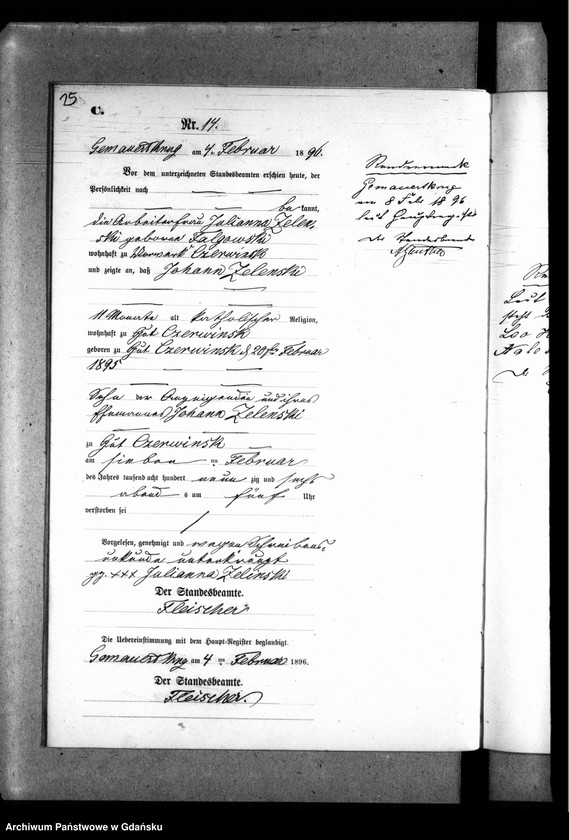 25
C.
Nr. 14.
Gemauertkrug am 4. Februar 1896.
Vor dem unterzeichneten Standesbeamten erschien heute, der
Persönlichkeit nach
bekannt,
die Arbeiterfrau Julianna Zelen-
ski geborene Falgowski
wohnhaft zu Vorwerk Czerwinsk
und zeigte an, daß Johann Zelenski
11 Monate alt katholischer Religion,
wohnhaft zu Gut Czerwinsk
geboren zu Gut Czerwinsk d. 20ten Februar
1895
Sohn der Anzeigenden und ihres
Ehemannes Johann Zelenski
zu Gut Czerwinsk
am sieben ten Februar
des Jahres tausend acht hundert neunzig und sechs
abends um fünf Uhr
verstorben sei
Vorgelesen, genehmigt und wegen Schreibens-
unkunde unterkreuzt
gz. +++ Julianna Zelinski
Der Standesbeamte.
Fleischer
Die Uebereinstimmung mit dem Haupt-Register beglaubigt.
Gemauertkrug am 4 ten Februar 1896.
Der Standesbeamte.
Fleischer.
Gemauertkrug
am 8 Feb 1896
Archiwum Państwowe w Gdańsku